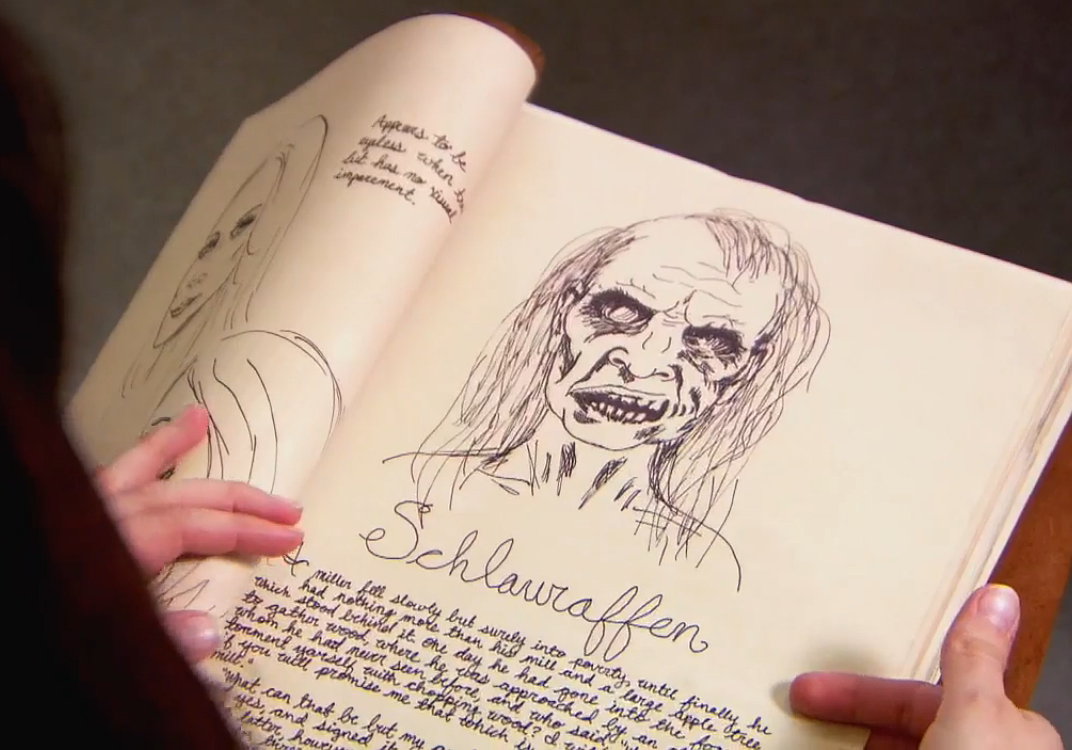 Appears to be
eyeless when
but has no visual
imparement.
Schlauraffen
miller fell slowly but surely into poverty, until finally he
had nothing more than his mill and a large apple tree
which stood behind it one day he had gone into the
to gather wood, where he was approached by an
whom he had never seen before, and who said,
torment yourself with chopping wood? I will
if you will promise me that which is
mill."
"What can that be but my
yes, and signed it
latter, however